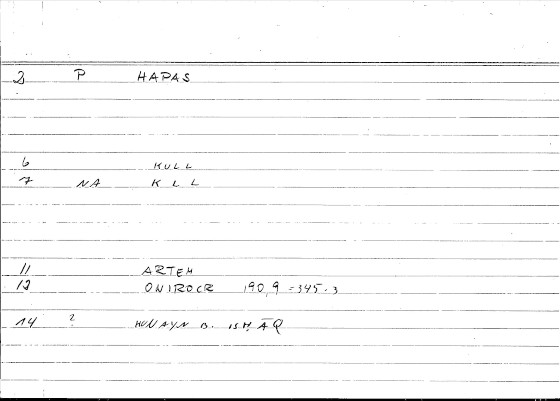 2 P HAPAS
6 KULL
7 NA KLL
11 ARTEM
12 ONIROCR 190,9 = 345.3
14 ? HUNAYN B. ISḤĀQ